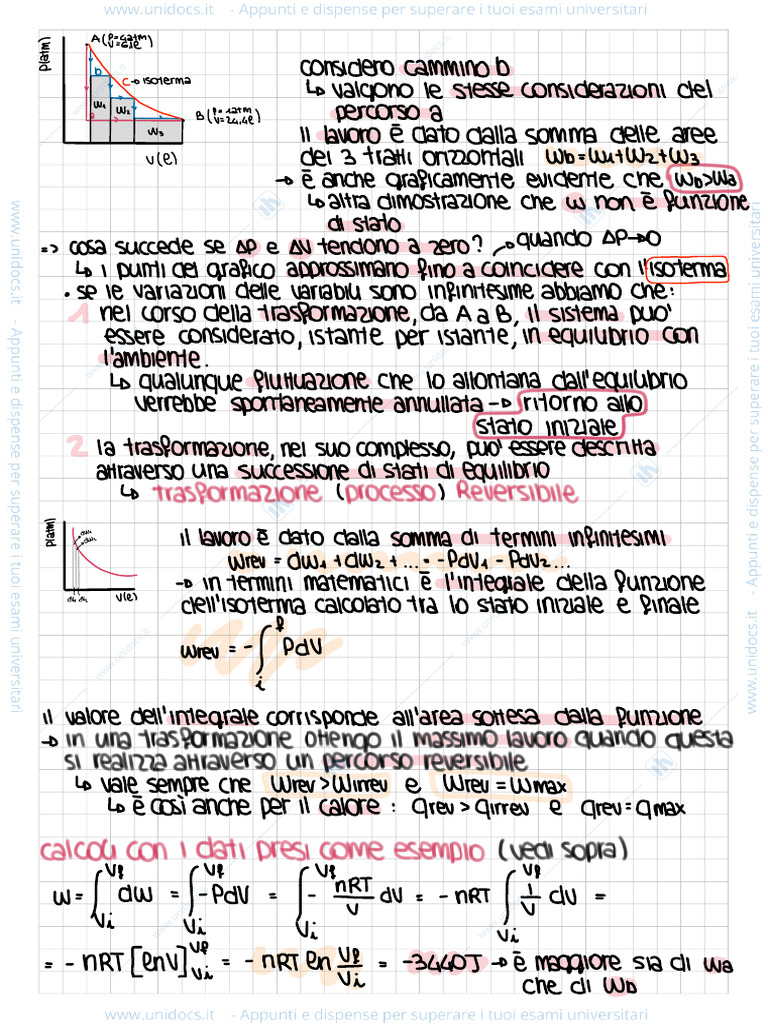 www.unidocs.it - Appunti e dispense per superare i tuoi esami universitari
P(atm)
A (P=4atm
V=6,1ℓ)
b
c → isoterma
W1
W2
W3
a
B (P=1atm
V=24,4ℓ)
V(ℓ)
considero cammino b
↳ valgono le stesse considerazioni del
percorso a
il lavoro è dato dalla somma delle aree
dei 3 tratti orizzontali Wb=W1+W2+W3
→ è anche graficamente evidente che Wb>Wa
↳ altra dimostrazione che W non è funzione
di stato
=> cosa succede se ΔP e ΔV tendono a zero? quando ΔP→0
↳ i punti del grafico approssimano fino a coincidere con l'isoterma
• se le variazioni delle variabili sono infinitesime abbiamo che:
1 nel corso della trasformazione, da A a B, il sistema puo'
essere considerato, istante per istante, in equilibrio con
l'ambiente.
↳ qualunque fluttuazione che lo allontana dall'equilibrio
verrebbe spontaneamente annullata → ritorno allo
stato iniziale
2 la trasformazione, nel suo complesso, puo' essere descritta
attraverso una successione di stati di equilibrio
↳ trasformazione (processo) Reversibile
P(atm)
dW1
dW2
dV1 dV2
V(ℓ)
il lavoro è dato dalla somma di termini infinitesimi
Wrev = dW1 + dW2 + ... = -PdV1 - PdV2...
→ in termini matematici è l'integrale della funzione
dell'isoterma calcolato tra lo stato iniziale e finale
Wrev = - ∫ᵢᶠ PdV
il valore dell'integrale corrisponde all'area sottesa dalla funzione
→ in una trasformazione ottengo il massimo lavoro quando questa
si realizza attraverso un percorso reversibile
↳ vale sempre che Wrev>Wirrev e Wrev=Wmax
↳ è così anche per il calore: qrev>qirrev e qrev=qmax
calcoli con i dati presi come esempio (vedi sopra)
W = ∫Vi^Vf dW = ∫Vi^Vf -PdV = ∫Vi^Vf - nRT/V dV = - nRT ∫Vi^Vf 1/V dV =
= - nRT [ℓnV]Vi^Vf = - nRT ℓn Vf/Vi = -3440J → è maggiore sia di Wa
che di Wb
www.unidocs.it - Appunti e dispense per superare i tuoi esami universitari